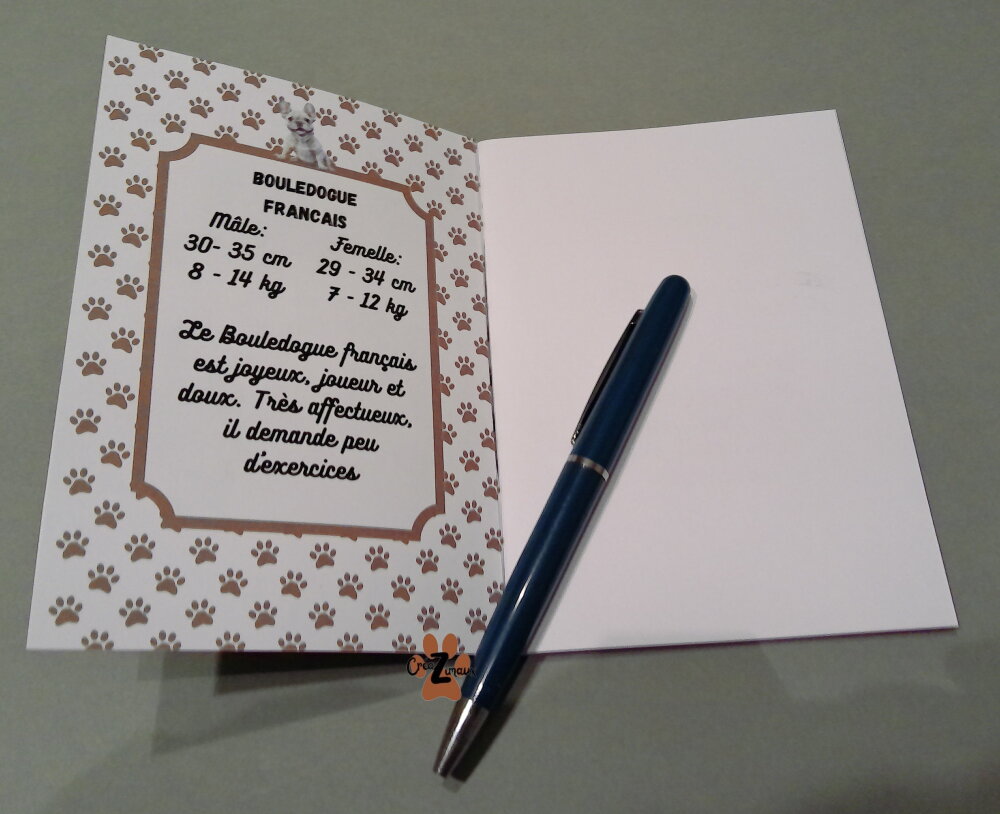 BOULEDOGUE
FRANCAIS
Mâle:
30- 35 cm
8 - 14 kg
Femelle:
29 - 34 cm
7 - 12 kg
Le Bouledogue français
est joyeux, joueur et
doux. Très affectueux,
il demande peu
d'exercices